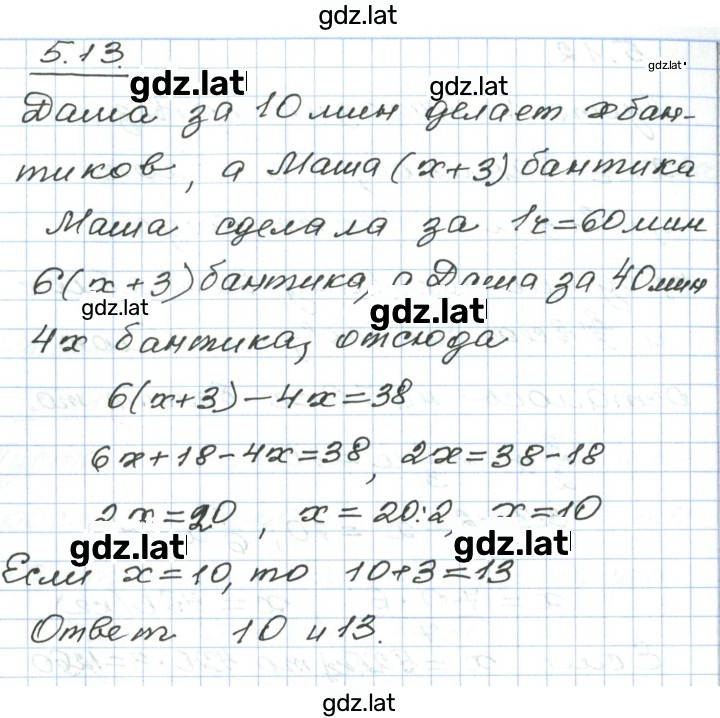 gdz.lat
5.13.
gdz.lat gdz.lat gdz.lat
Даша за 10 мин делает x бан-
тиков, а Маша (x+3) бантика
Маша сделала за 1ч=60мин
6(x+3) бантика, а Даша за 40мин
gdz.lat gdz.lat
4x бантика, отсюда
6(x+3)-4x=38
6x+18-4x=38, 2x=38-18
2x=20, x=20:2, x=10
gdz.lat gdz.lat
Если x=10, то 10+3=13
Ответ 10 и 13.
gdz.lat